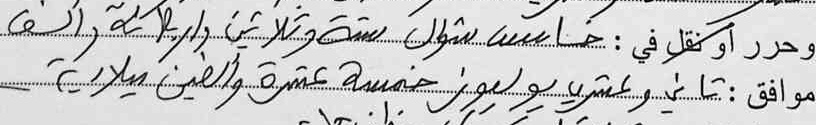 وحرر أو نقل في : خامس شوال ستة وثلاثين واربعمائة وألف
موافق : ثاني وعشرين يوليوز خمسة عشرة وألفين ميلادية